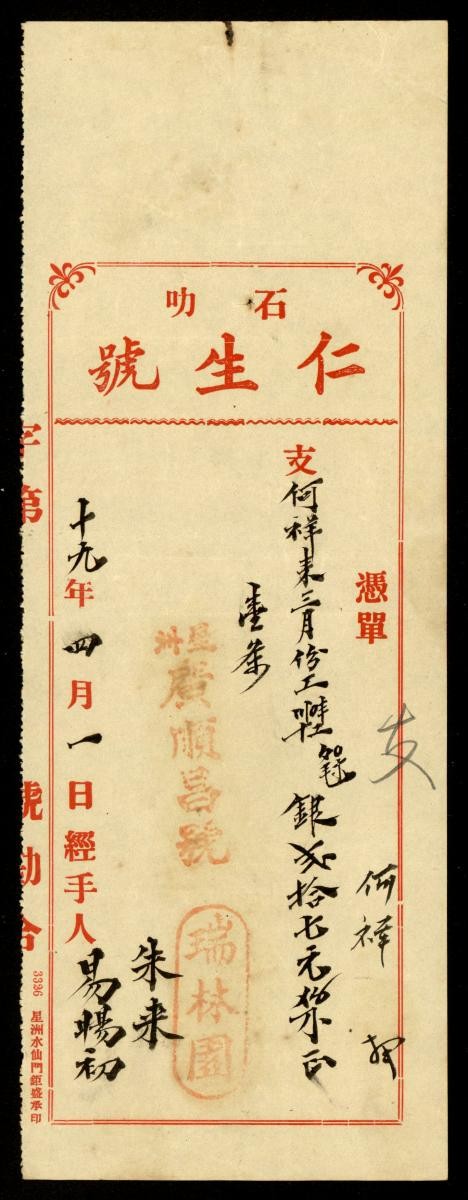 石叻
仁生號
憑單
支
何祥
支何祥來三月份工
銀弍拾七元
壹條
星洲
廣順昌號
瑞林園
十九年四月一日經手人
朱来
易暢初
字第 號勘合
3326 星洲水仙門鉅盛承印